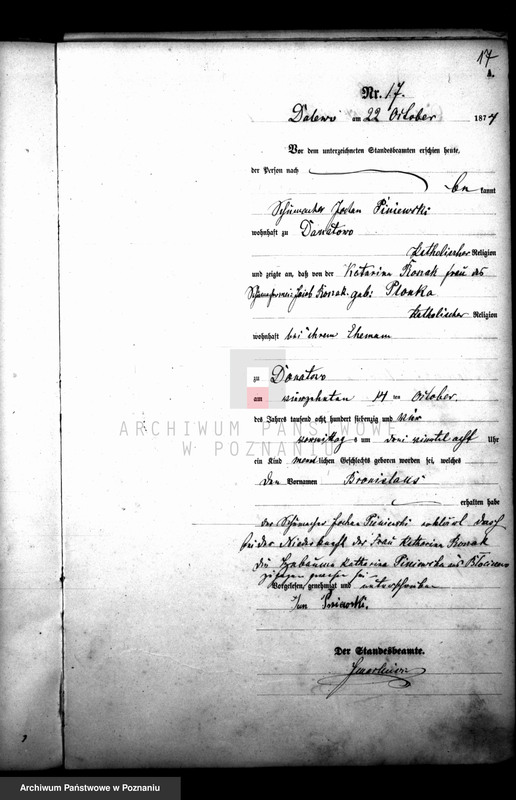 17
A.
Nr. 17.
Dalewo am 22 October 1874
Vor dem unterzeichneten Standesbeamten erschien heute,
der Person nach
bekannt
Schumacher Johan Piniewski
wohnhaft zu Donatowo
katholischer Religion
und zeigte an, daß von der Katarina Konak frau des
Jacob Konak geb: Plonka
katholischer Religion
wohnhaft bei ihrem Ehemann
zu Donatowo
am vierzehnten 14 ten October
des Jahres tausend acht hundert siebenzig und vier
vormittag s um drei viertel acht Uhr
ein Kind männlichen Geschlechts geboren worden sei, welches
den Vornamen Bronislaus
erhalten habe
der Schumacher Johan Piniewski erklärt
bei der Niederkunft der Frau Katharina Konak
die Hebamme Katharina Piniewska aus
zugegen gewesen sei
Vorgelesen, genehmigt und unterschrieben
Jan Piniewski.
Der Standesbeamte.
ARCHIWUM PAŃSTWOWE
W POZNANIU
Archiwum Państwowe w Poznaniu